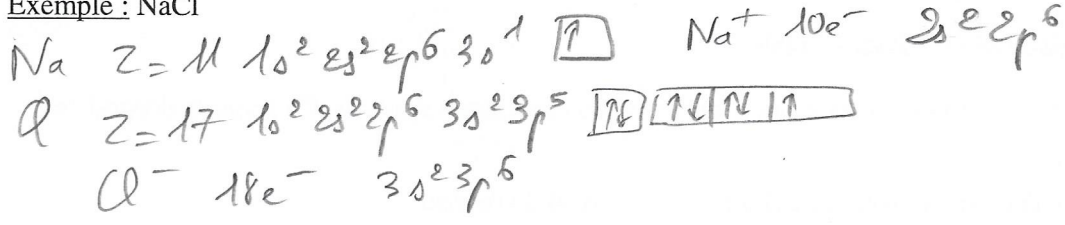 Exemple : NaCl
Na Z = 11 1s² 2s² 2p⁶ 3s¹ ↑ Na⁺ 10e⁻ 2s² 2p⁶
Cl Z = 17 1s² 2s² 2p⁶ 3s² 3p⁵ ↑↓ ↑↓ ↑↓ ↑
Cl⁻ 18e⁻ 3s² 3p⁶